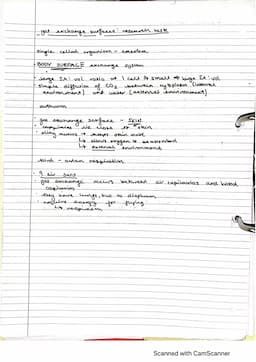 gas exchange surfaces research task
single celled organism - amoeba
BODY SURFACE exchange system
large SA:vol ratio → 1 cell → small → huge SA:vol
simple diffusion of CO2 between cytoplasm (internal
environment) and water (external environment)
earthworm
gas exchange surface - skin
capillaries lie close to skin
slimy mucus → keeps skin moist
↳ allows oxygen to be absorbed
↳ external environment
bird - avian respiration
9 air sacs
gas exchange occurs between air capillaries and blood
capillaries
they have lungs, but no diaphragm
require energy for flying
↳ respiration
Scanned with CamScanner